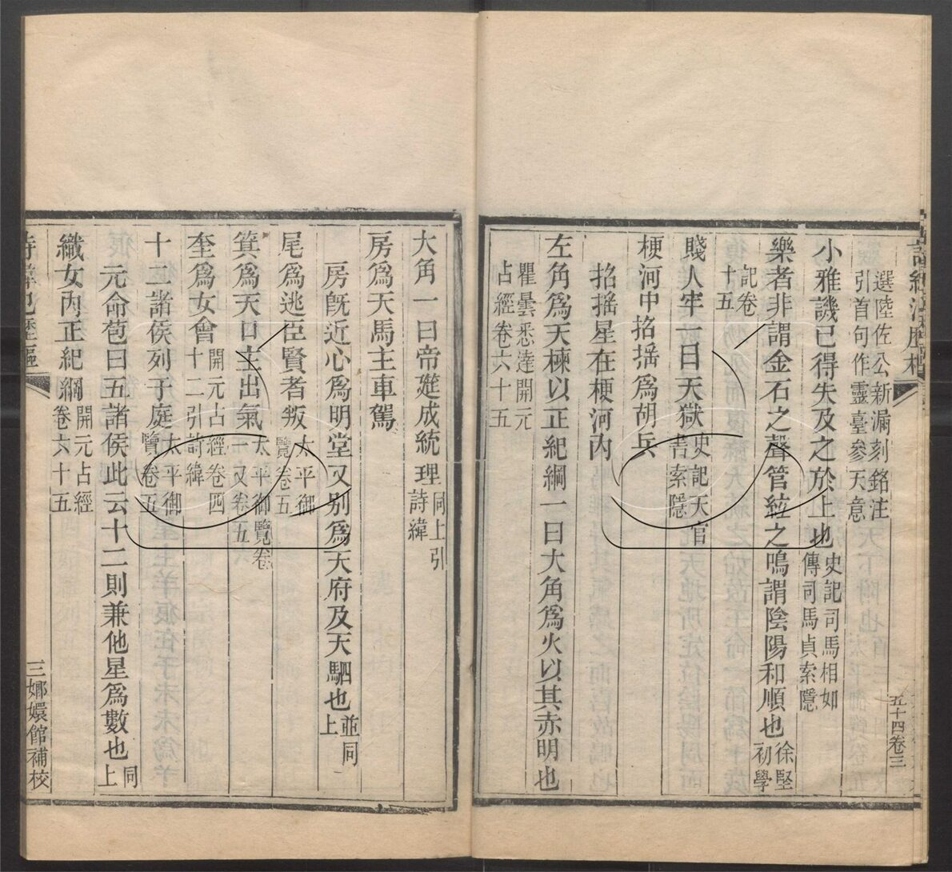 五十四卷三
選陸佐公新漏刻銘注
引首句作靈臺參天意
小雅譏已得失及之於上也史記司馬相如
傳司馬貞索隱
樂者非謂金石之聲管絃之鳴謂陰陽和順也徐堅
初學
記卷
十五
賤人牢一曰天獄史記天官
書索隱
梗河中招搖為胡兵
招搖星在梗河內
左角為天棟以正紀綱一曰大角為火以其赤明也
瞿曇悉逹開元
占經卷六十五
大角一曰帝筵成統理同上引
詩緯
房為天馬主車駕
房旣近心為明堂又别為天府及天駟也並同
上
尾為逃臣賢者叛太平御
覽卷五
箕為天口主出氣太平御覽卷
一又卷五
奎為女會開元占經卷四
十二引詩緯
十二諸侯列于庭太平御
覽卷五
元命苞曰五諸侯此云十二則兼他星為數也同
上
織女內正紀綱開元占經
卷六十五
三嫏嬛館補校